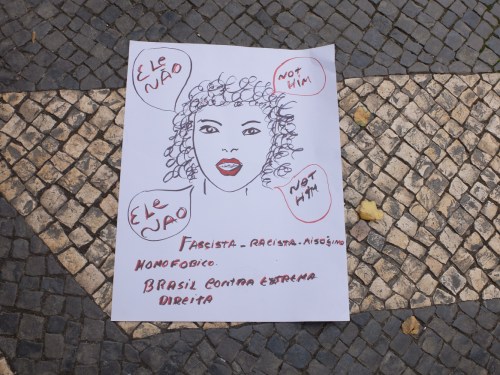 ELE
NÃO
NOT
HIM
ELE
NAO
NOT
HIM
FASCISTA - RACISTA - MISÓGINO
HOMOFOBICO.
BRASIL CONTRA EXTREMA
DIREITA